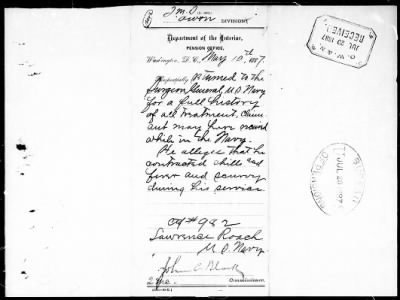 DIVISION,
Department of the Interior,
PENSION OFFICE,
Washington, D. C., May 10th 1887.
Respectfully Returned to the
Surgeon General, U.S. Navy
for a full history
of all treatment, claim-
ant may have received
while in the Navy.
He alleges that he
contracted chills and
fever and scurvy
during his service
982
Lawrence Roach
U.S. Navy.
John C Black
Commissioner.
RECEIVED
JUL 20 1887